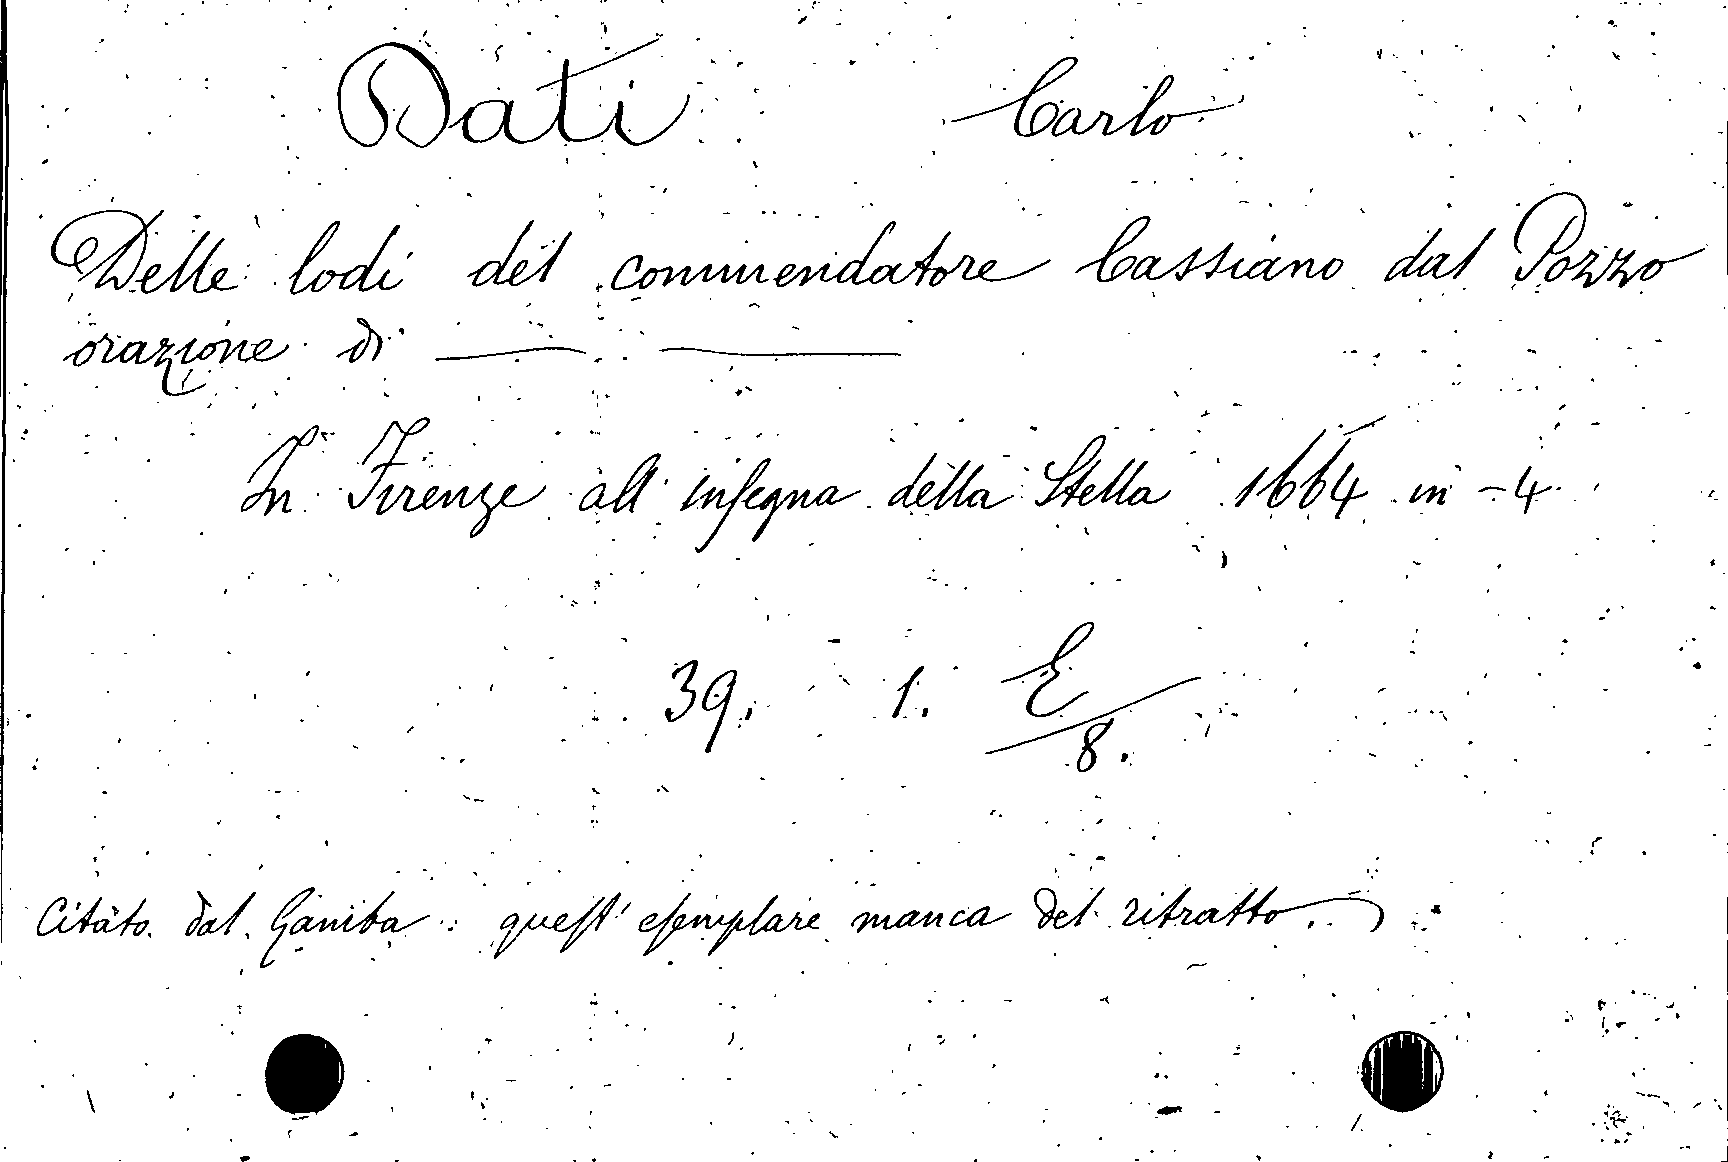 Dati Carlo
Delle lodi del commendatore Cassiano dal Pozzo
orazione di —— ——
In Firenze all' insegna della Stella 1664 in-4
39. 1. E/8.
Citato dal Gamba: quest' esemplare manca del ritratto.